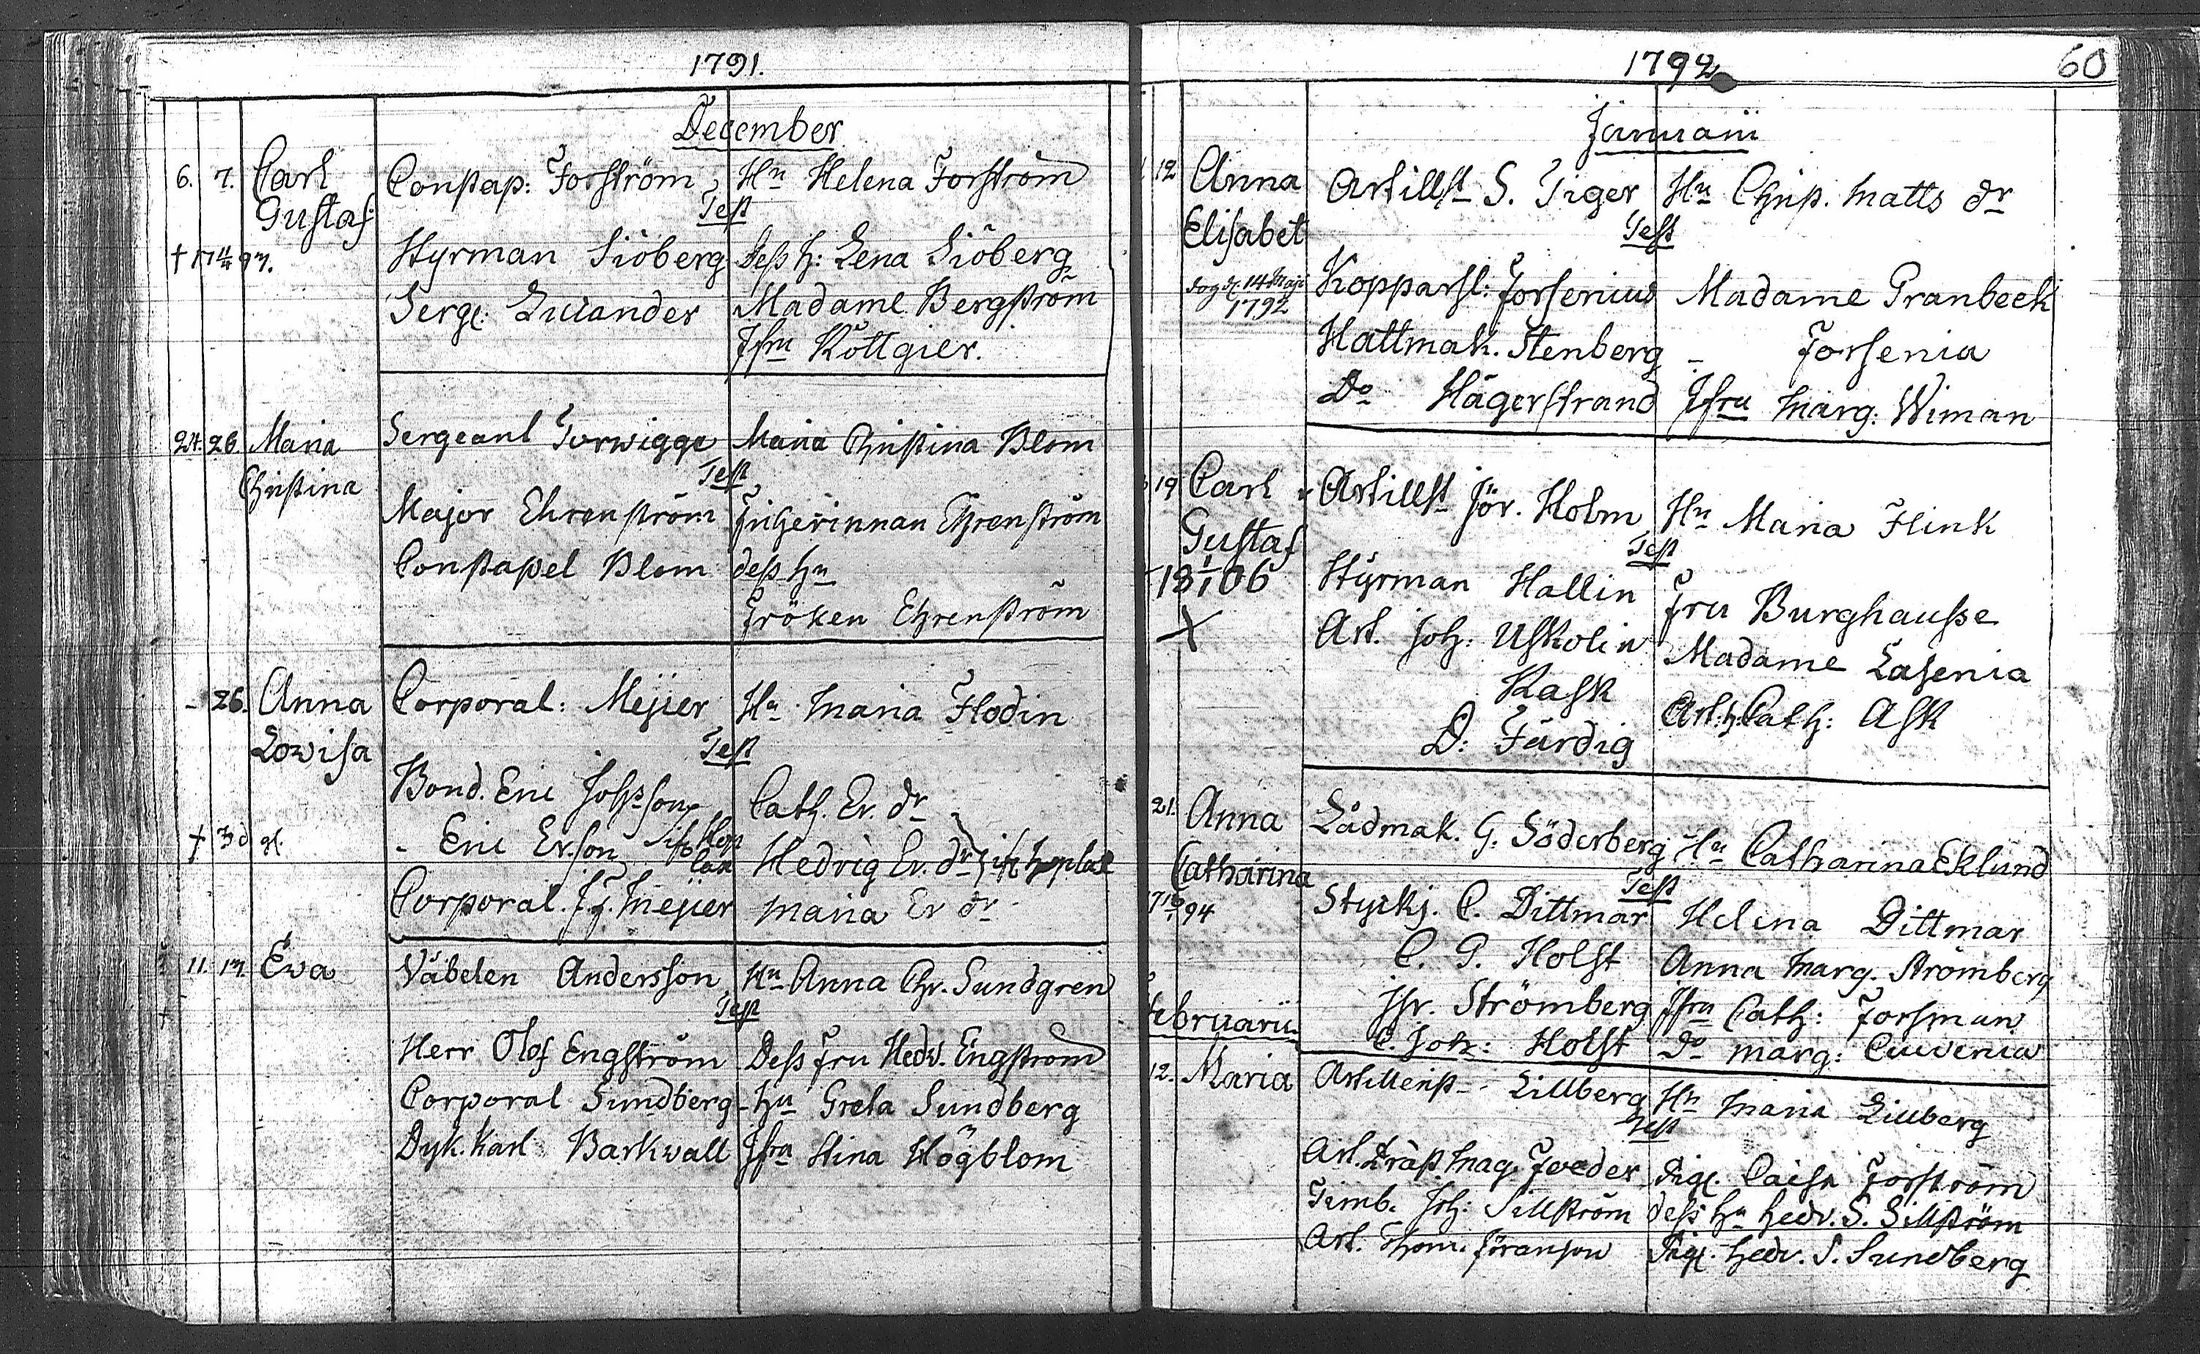 1791.
December
6. 7. Carl Gustaf
Constap: Forström Hu Helena Forström
Test
† 17 11/4 97.
Styrman Siöberg Dess h: Lena Siöberg
Serge: Madame Bergström
Jfru Röttgier.
24. 26. Maria Christina
Sergeant Torwigge Maria Christina Blom
Test
Major Ehrenström Ehrenström
Constapel Blom dess hu
Fröken Ehrenström
- 26. Anna Lowisa
Corporal: Mejier Hu Maria Flodin
Test
Bond. Eric Johsson Cath. Er. dr
† 3 d gl.
- Eric Erson Hedvig Er. dr
Corporal. J. J. Mejier Maria Er dr
11. 17. Eva
Väbelen Andersson Hu Anna Chr. Sundgren
Test
Herr Olof Engström Dess fru Hedv. Engström
Corporal Sundberg - hu Greta Sundberg
Dyk. Karl Barkwall Jfru Stina Högblom
1792
60
Januarii
12 Anna Elisabet
Artillst S. Tiger Hu Christ. Matts dr
Test
dog d. 14 Maji 1792
Kopparsl: Forsenius Madame Granbeck
Hattmak. Stenberg - Forsenia
Do Hägerstrand Jfru Marg: Wiman
19 Carl Gustaf
Artillst Jör. Holm Hu Maria Flink
Test
18 1/1 06
Styrman Hallin Fru Burghausse
Art. Joh: Uskolin Madame Lasenia
Rask Art. h. Cath: Ask
D: Färdig
21. Anna Catharina
Lådmak. G. Söderberg Hu Catharina Eklund
Test
94
Styckj. C. Dittmar Helena Dittmar
C. G. Holst Anna Marg. Strömberg
Jfr. Strömberg Jfru Cath: Forsman
C. Joh: Holst Do Marg:
Februarii
12. Maria
Artillerist - Lillberg Hu Maria Lillberg
Test
Art. Foeder Pig. Caisa Forström
Timb. Joh: Sillström dess hu Hedv. S. Sillström
Art. Thom. Göranson Pig. Hedv. S. Sundberg